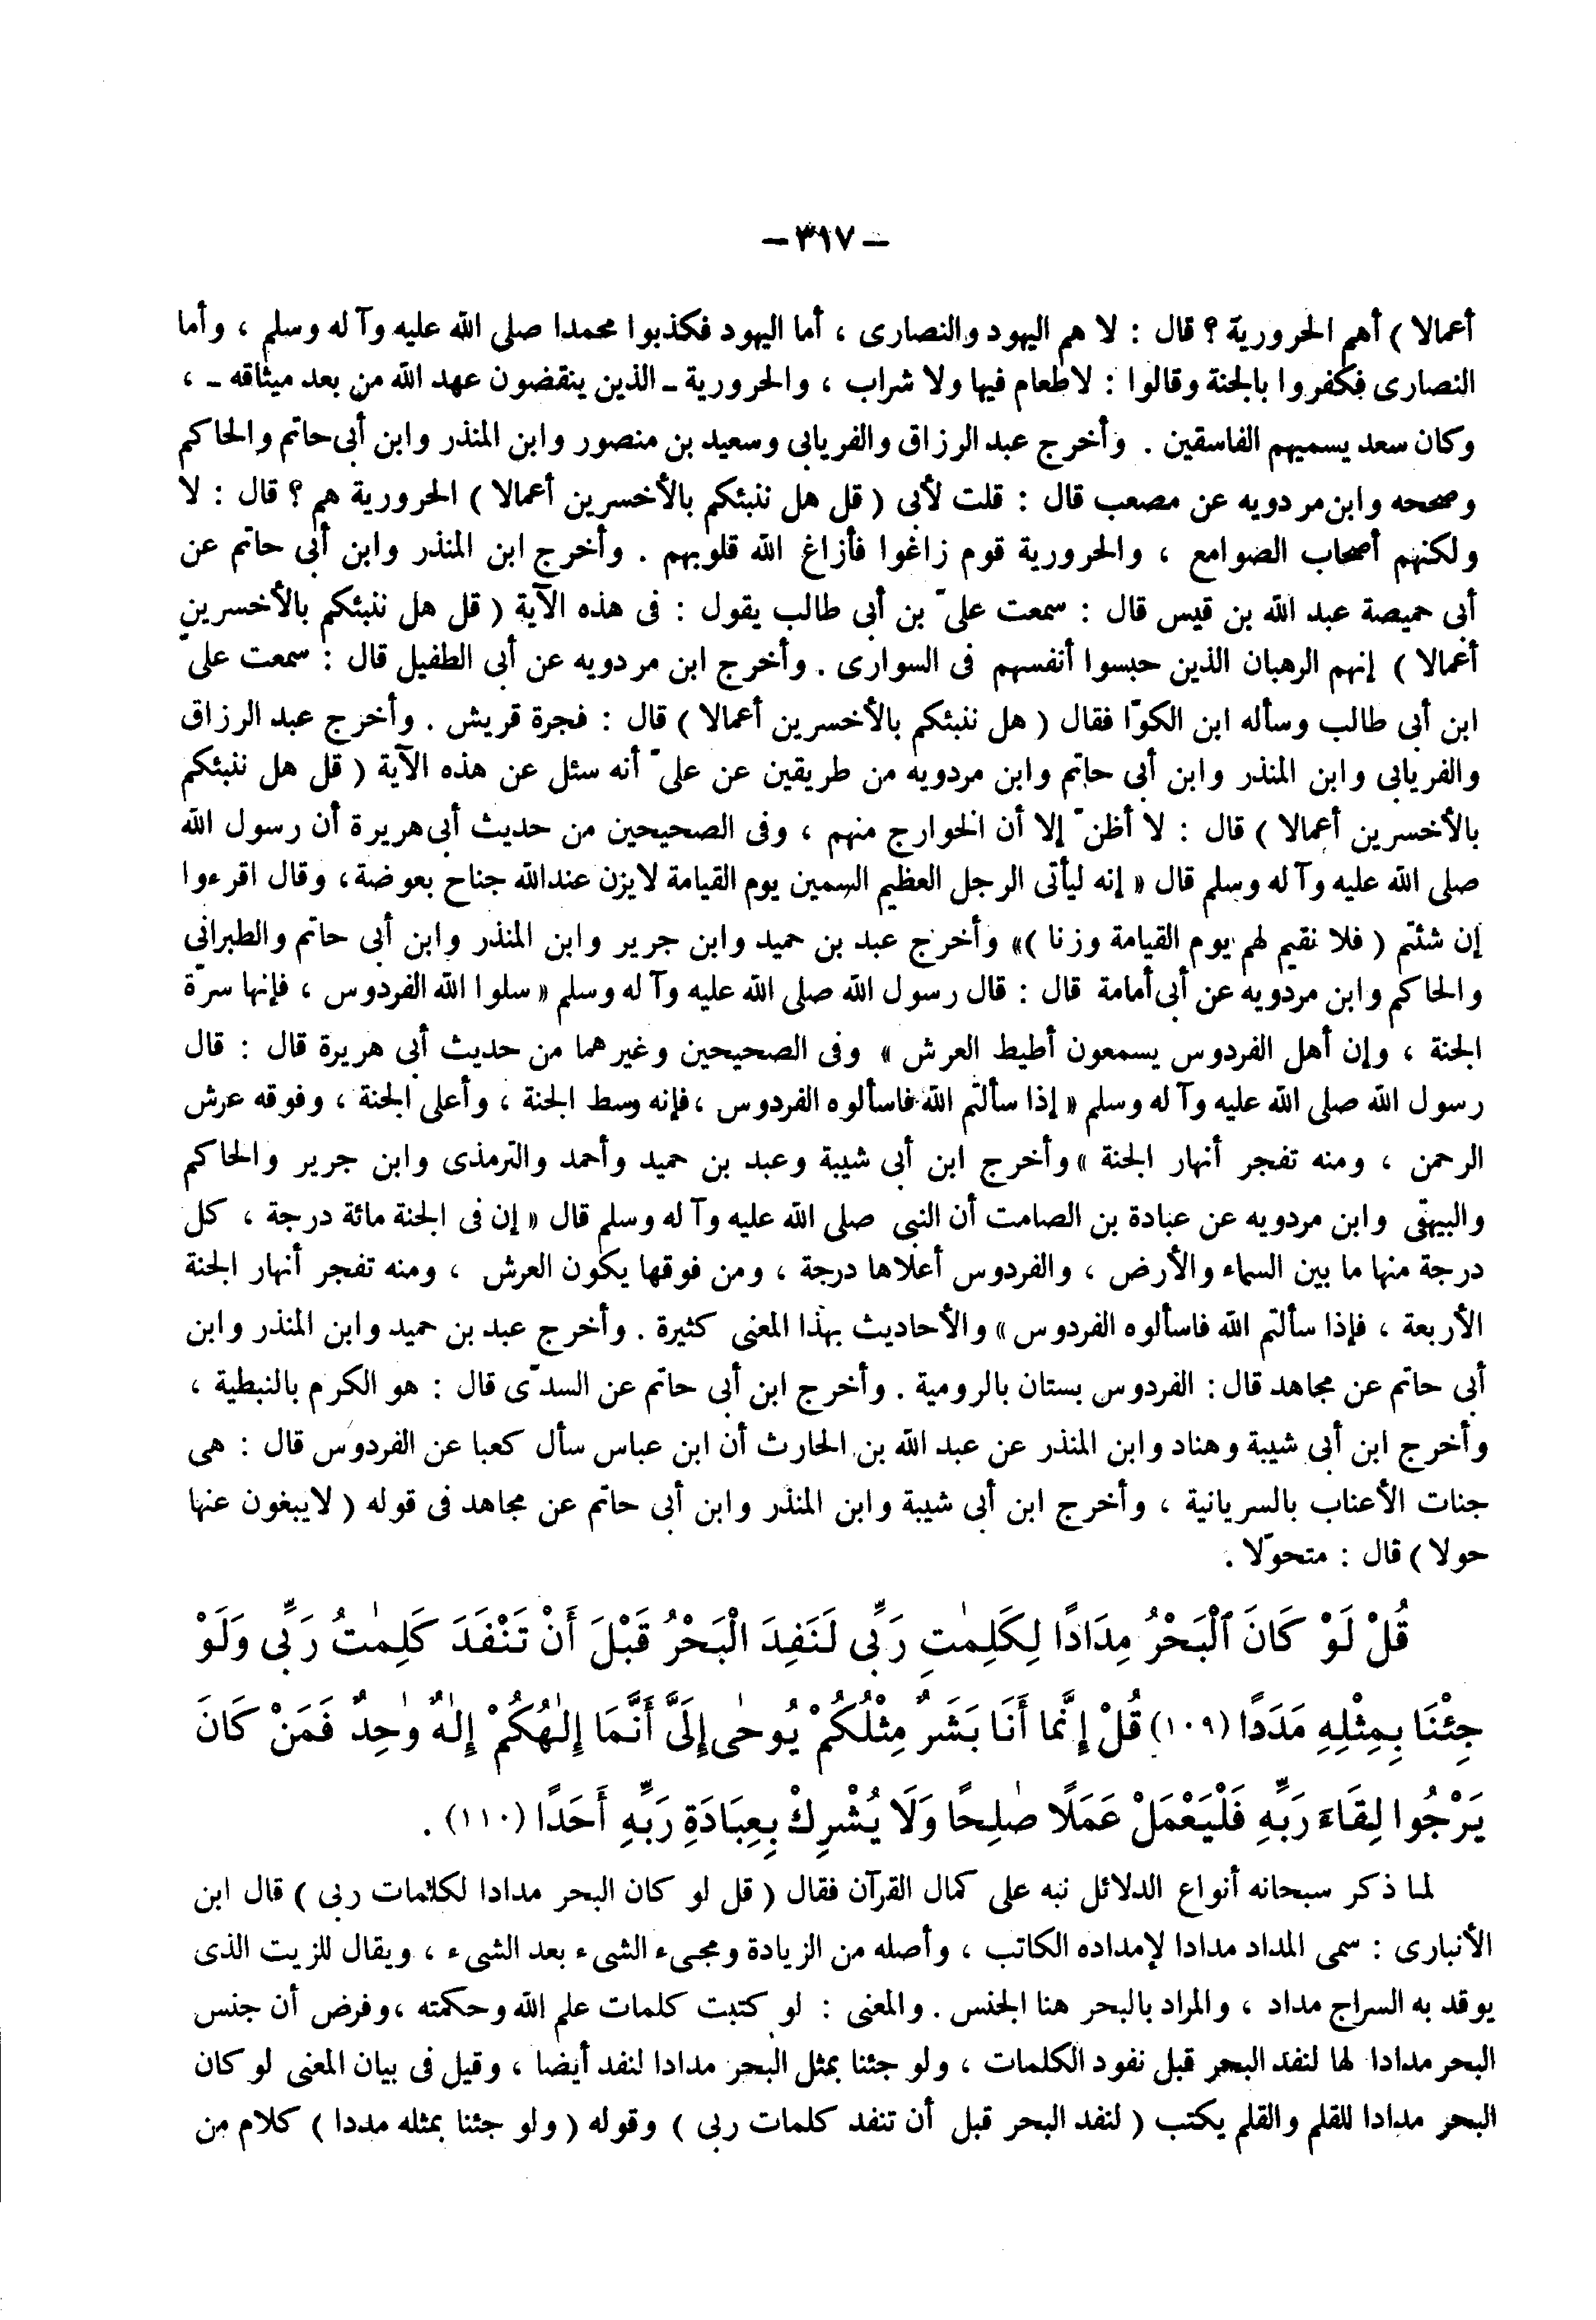 - ٣١٧ -
أعمالا ) أهم الحرورية ؟ قال : لا هم اليهود والنصارى ، أما اليهود فكذبوا محمدا صلى الله عليه وآله وسلم ، وأما
النصارى فكفروا بالجنة وقالوا : لاطعام فيها ولا شراب ، والحرورية ـ الذين ينقضون عهد الله من بعد ميثاقه ـ ،
وكان سعد يسميهم الفاسقين . وأخرج عبد الرزاق والفريابى وسعيد بن منصور وابن المنذر وابن أبى حاتم والحاكم
وصححه وابن مردويه عن مصعب قال : قلت لأبى ( قل هل ننبئكم بالأخسرين أعمالا ) الحرورية هم ؟ قال : لا
ولكنهم أصحاب الصوامع ، والحرورية قوم زاغوا فأزاغ الله قلوبهم . وأخرج ابن المنذر وابن أبى حاتم عن
أبى خميصة عبد الله بن قيس قال : سمعت علىّ بن أبى طالب يقول : فى هذه الآية ( قل هل ننبئكم بالأخسرين
أعمالا ) إنهم الرهبان الذين حبسوا أنفسهم فى السوارى . وأخرج ابن مردويه عن أبى الطفيل قال : سمعت علىّ
ابن أبى طالب وسأله ابن الكوّا فقال ( هل ننبئكم بالأخسرين أعمالا ) قال : فجرة قريش . وأخرج عبد الرزاق
والفريابى وابن المنذر وابن أبى حاتم وابن مردويه من طريقين عن علىّ أنه سئل عن هذه الآية ( قل هل ننبئكم
بالأخسرين أعمالا ) قال : لا أظنّ إلا أن الخوارج منهم ، وفى الصحيحين من حديث أبى هريرة أن رسول الله
صلى الله عليه وآله وسلم قال « إنه ليأتى الرجل العظيم السمين يوم القيامة لايزن عندالله جناح بعوضة، وقال اقرءوا
إن شئتم ( فلا نقيم لهم يوم القيامة وزنا )» وأخرج عبد بن حميد وابن جرير وابن المنذر وابن أبى حاتم والطبرانى
والحاكم وابن مردويه عن أبى أمامة قال : قال رسول الله صلى الله عليه وآله وسلم « سلوا الله الفردوس ، فإنها سرّة
الجنة ، وإن أهل الفردوس يسمعون أطيط العرش » وفى الصحيحين وغيرهما من حديث أبى هريرة قال : قال
رسول الله صلى الله عليه وآله وسلم « إذا سألتم الله فاسألوه الفردوس ،فإنه وسط الجنة ، وأعلى الجنة ، وفوقه عرش
الرحمن ، ومنه تفجر أنهار الجنة » وأخرج ابن أبى شيبة وعبد بن حميد وأحمد والترمذى وابن جرير والحاكم
والبيهقى وابن مردويه عن عبادة بن الصامت أن النبى صلى الله عليه وآله وسلم قال « إن فى الجنة مائة درجة ، كل
درجة منها ما بين السماء والأرض ، والفردوس أعلاها درجة ، ومن فوقها يكون العرش ، ومنه تفجر أنهار الجنة
الأربعة ، فإذا سألتم الله فاسألوه الفردوس » والأحاديث بهذا المعنى كثيرة . وأخرج عبد بن حميد وابن المنذر وابن
أبى حاتم عن مجاهد قال : الفردوس بستان بالرومية . وأخرج ابن أبى حاتم عن السدّى قال : هو الكرم بالنبطية ،
وأخرج ابن أبى شيبة وهناد وابن المنذر عن عبد الله بن الحارث أن ابن عباس سأل كعبا عن الفردوس قال : هى
جنات الأعناب بالسريانية ، وأخرج ابن أبى شيبة وابن المنذر وابن أبى حاتم عن مجاهد فى قوله ( لايبغون عنها
حولا ) قال : متحوّلا .
قُلْ لَوْ كَانَ ٱلْبَحْرُ مِدَادًا لِكَلِمٰتِ رَبِّى لَنَفِدَ الْبَحْرُ قَبْلَ أَنْ تَنْفَدَ كَلِمٰتُ رَبِّى وَلَوْ
جِئْنَا بِمِثْلِهِ مَدَدًا (١٠٩) قُلْ إِنَّمَا أَنَا بَشَرٌ مِثْلُكُمْ يُوحٰى إِلَىَّ أَنَّمَا إِلٰهُكُمْ إِلٰهٌ وٰحِدٌ فَمَنْ كَانَ
يَرْجُوا لِقَاءَ رَبِّهِ فَلْيَعْمَلْ عَمَلًا صٰلِحًا وَلَا يُشْرِكْ بِعِبَادَةِ رَبِّهِ أَحَدًا (١١٠) .
لما ذكر سبحانه أنواع الدلائل نبه على كمال القرآن فقال ( قل لو كان البحر مدادا لكلمات ربى ) قال ابن
الأنبارى : سمى المداد مدادا لإمداده الكاتب ، وأصله من الزيادة ومجىء الشىء بعد الشىء ، ويقال للزيت الذى
يوقد به السراج مداد ، والمراد بالبحر هنا الجنس . والمعنى : لو كتبت كلمات علم الله وحكمته ،وفرض أن جنس
البحر مدادا لها لنفد البحر قبل نفود الكلمات ، ولو جئنا بمثل البحر مدادا لنفد أيضا ، وقيل فى بيان المعنى لو كان
البحر مدادا للقلم والقلم يكتب ( لنفد البحر قبل أن تنفد كلمات ربى ) وقوله ( ولو جئنا بمثله مددا ) كلام من